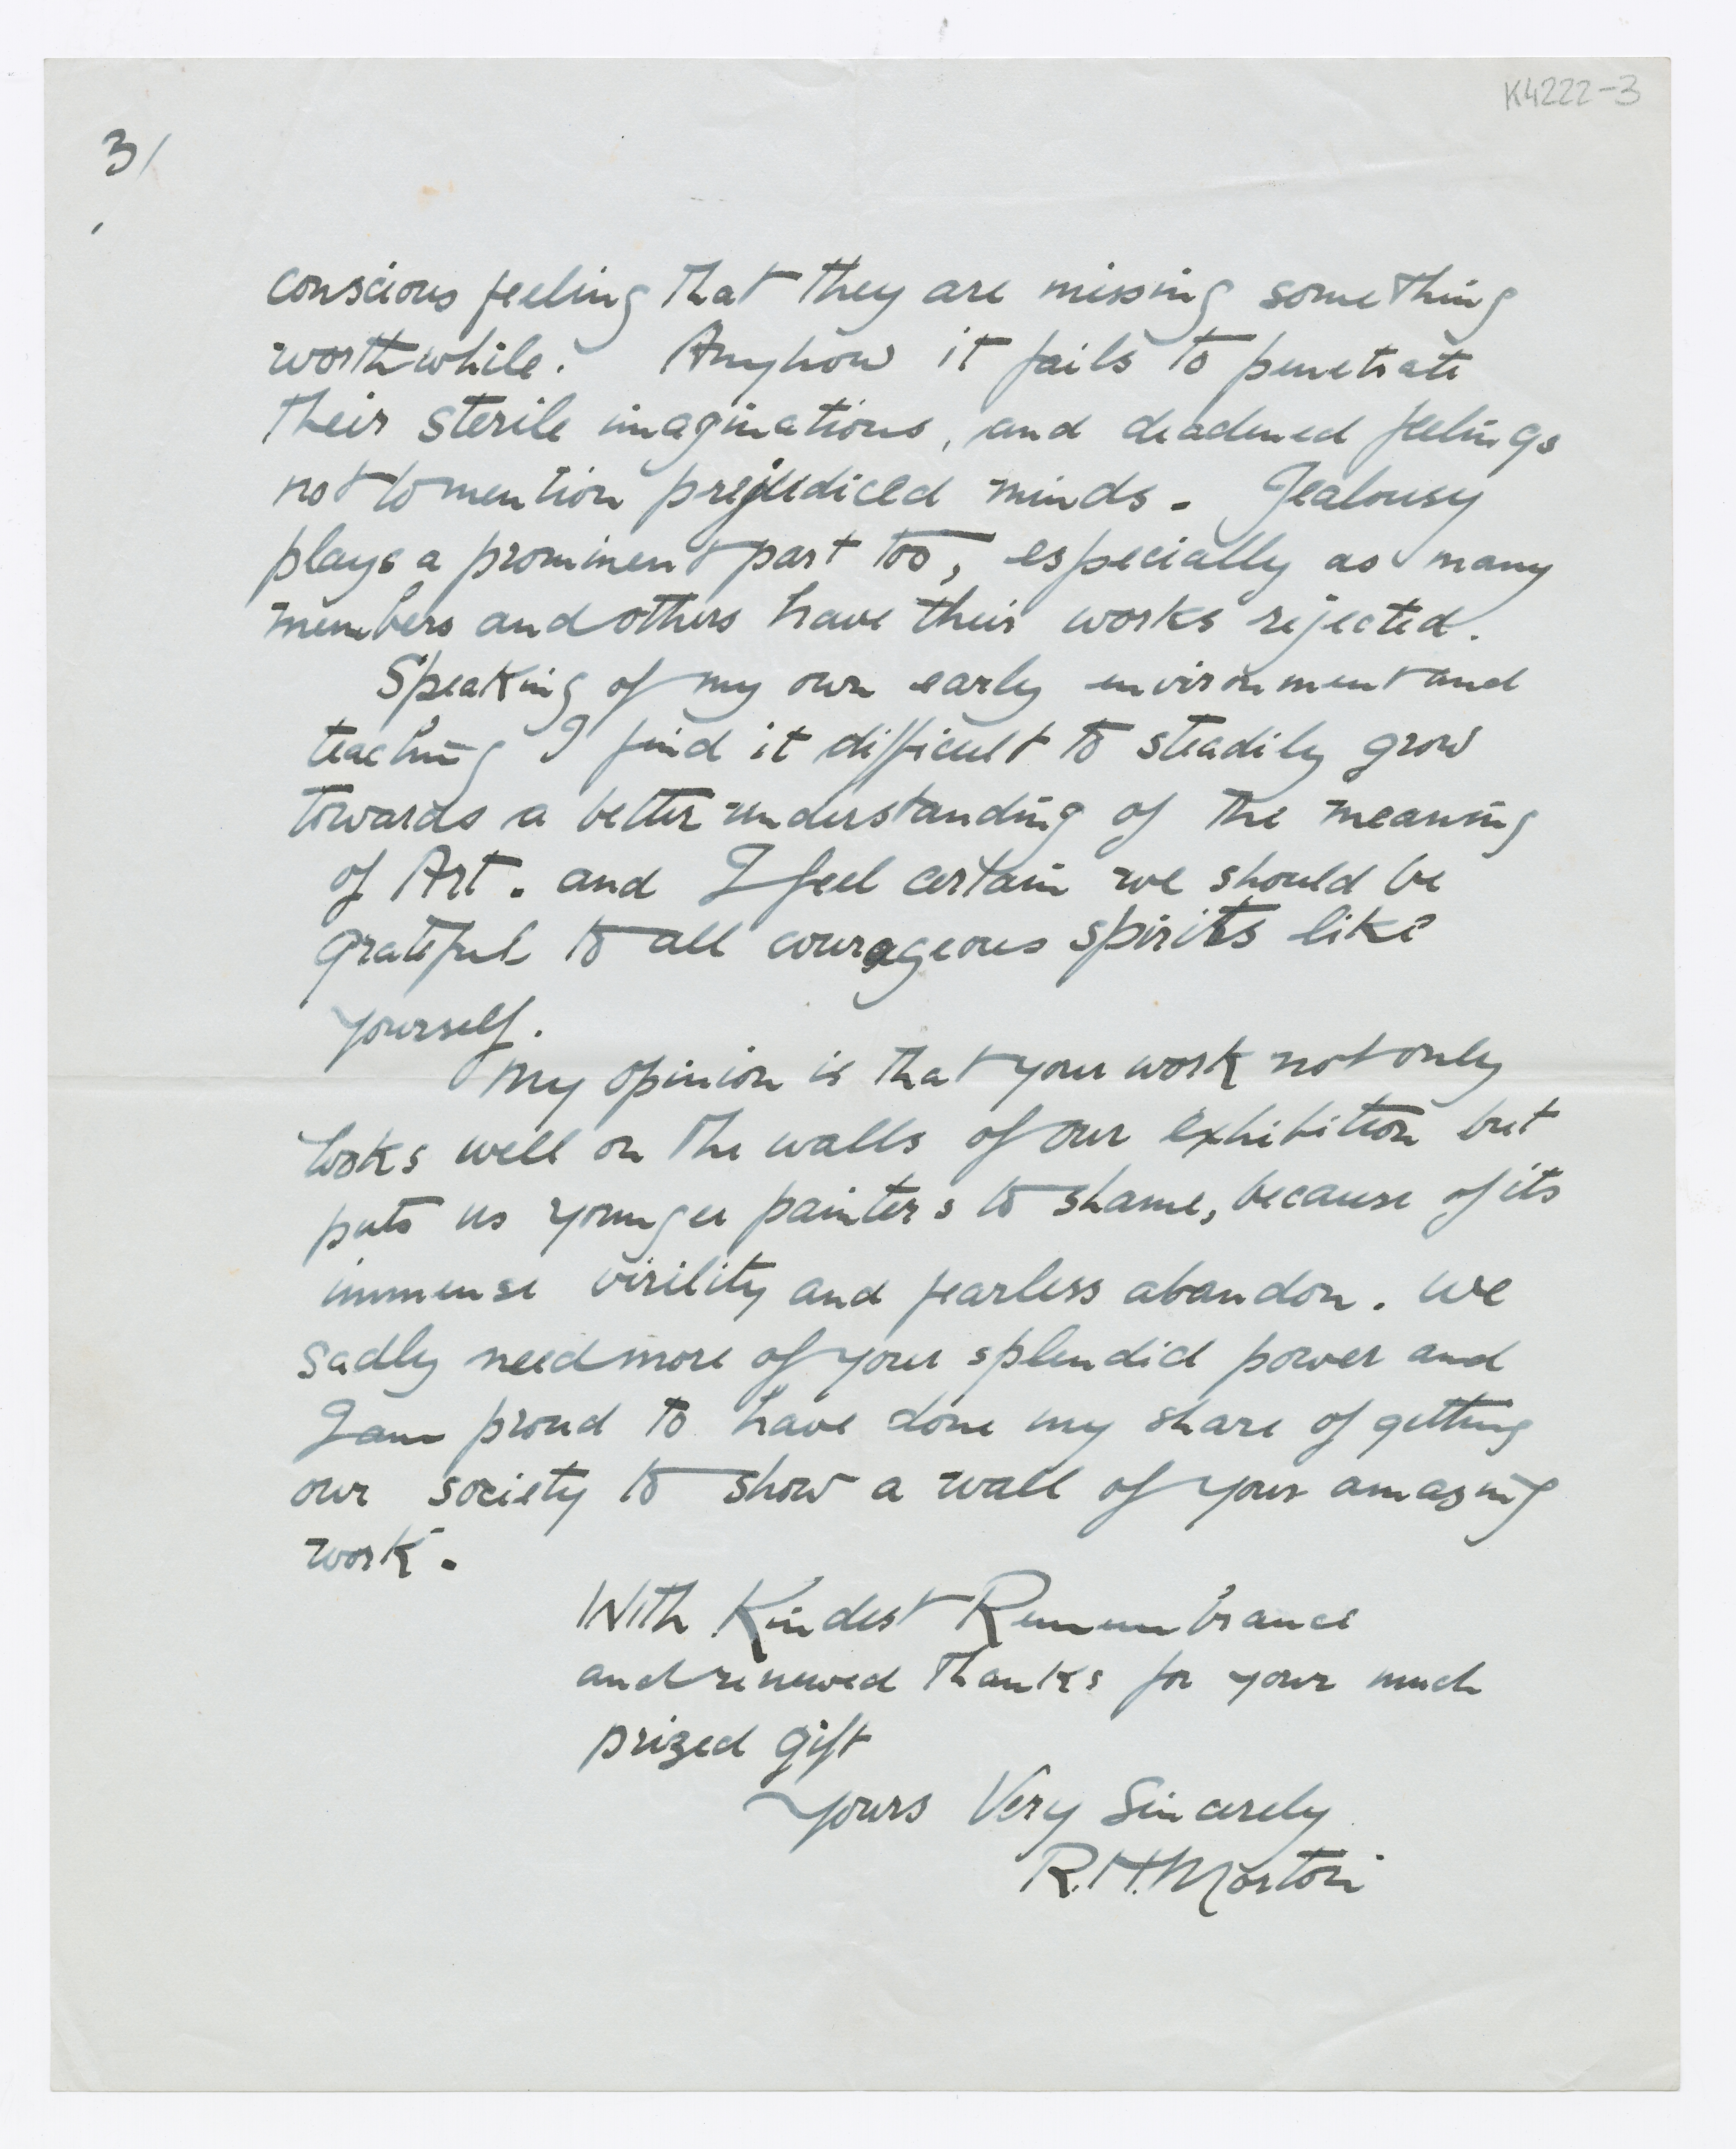 K4222-3
3/
conscious feeling that they are missing something
worthwhile. Anyhow it fails to penetrate
their sterile imaginations, and deadened feelings
not to mention prejudiced minds. Jealousy
plays a prominent part too, especially as many
members and others have their works rejected.
Speaking of my own early environment and
teaching I find it difficult to steadily grow
towards a better understanding of the meaning
of Art. and I feel certain we should be
grateful to all courageous spirits like
yourself.
My opinion is that your work not only
looks well on the walls of our exhibition but
puts us younger painters to shame, because of its
immense virility and fearless abandon. We
sadly need more of your splendid power and
I am proud to have done my share of getting
our society to show a wall of your amazing
work.
With Kindest Remembrance
and renewed thanks for your much
prized gift
Yours Very Sincerely
R.H. Morton